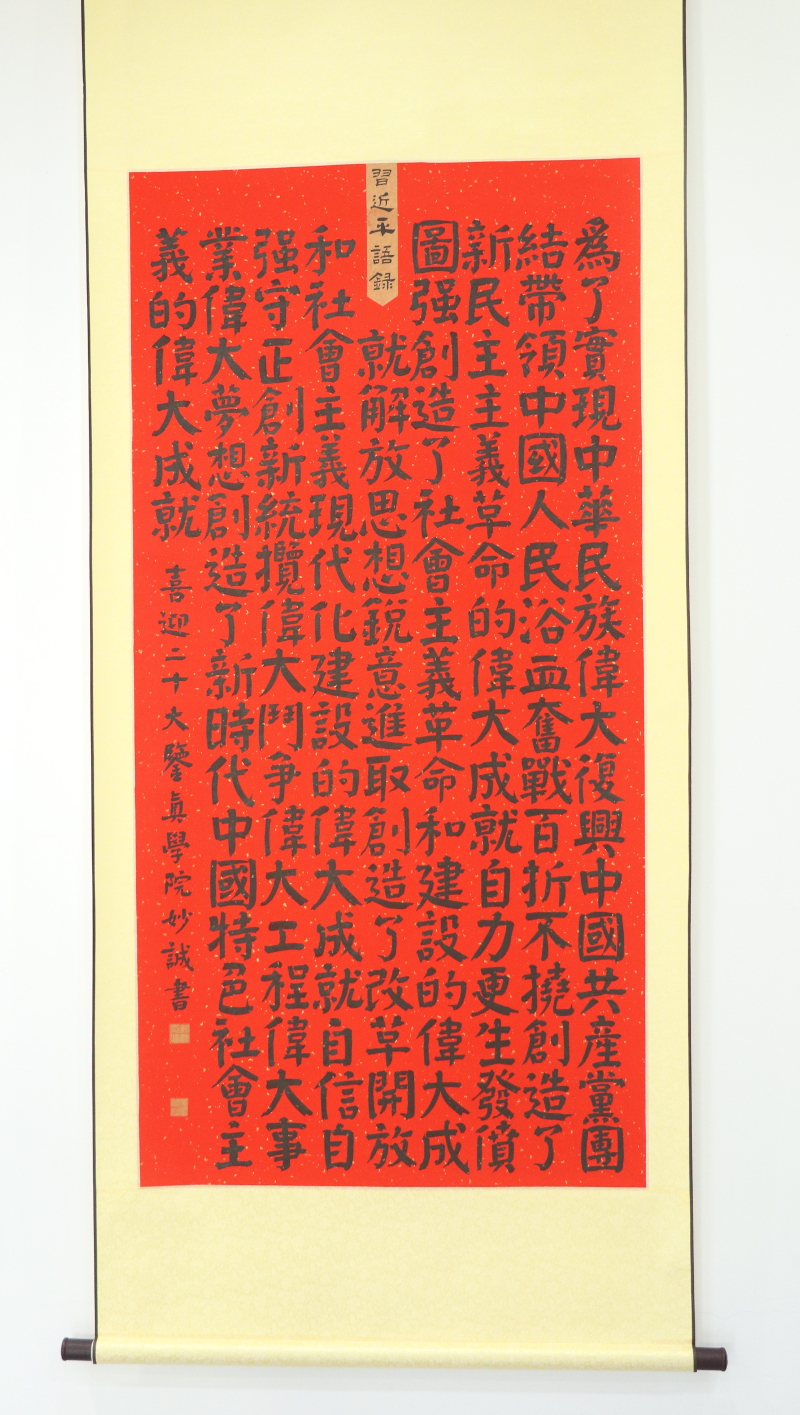 習近平語録
為了實現中華民族偉大復興中國共産黨團
結帶領中國人民浴血奮戰百折不撓創造了
新民主主義革命的偉大成就自力更生發憤
圖强創造了社會主義革命和建設的偉大成
就解放思想銳意進取創造了改革開放
和社會主義現代化建設的偉大成就自信自
强守正創新統攬偉大鬥争偉大工程偉大事
業偉大夢想創造了新時代中國特色社會主
義的偉大成就
喜迎二十大鑒真學院妙誠書